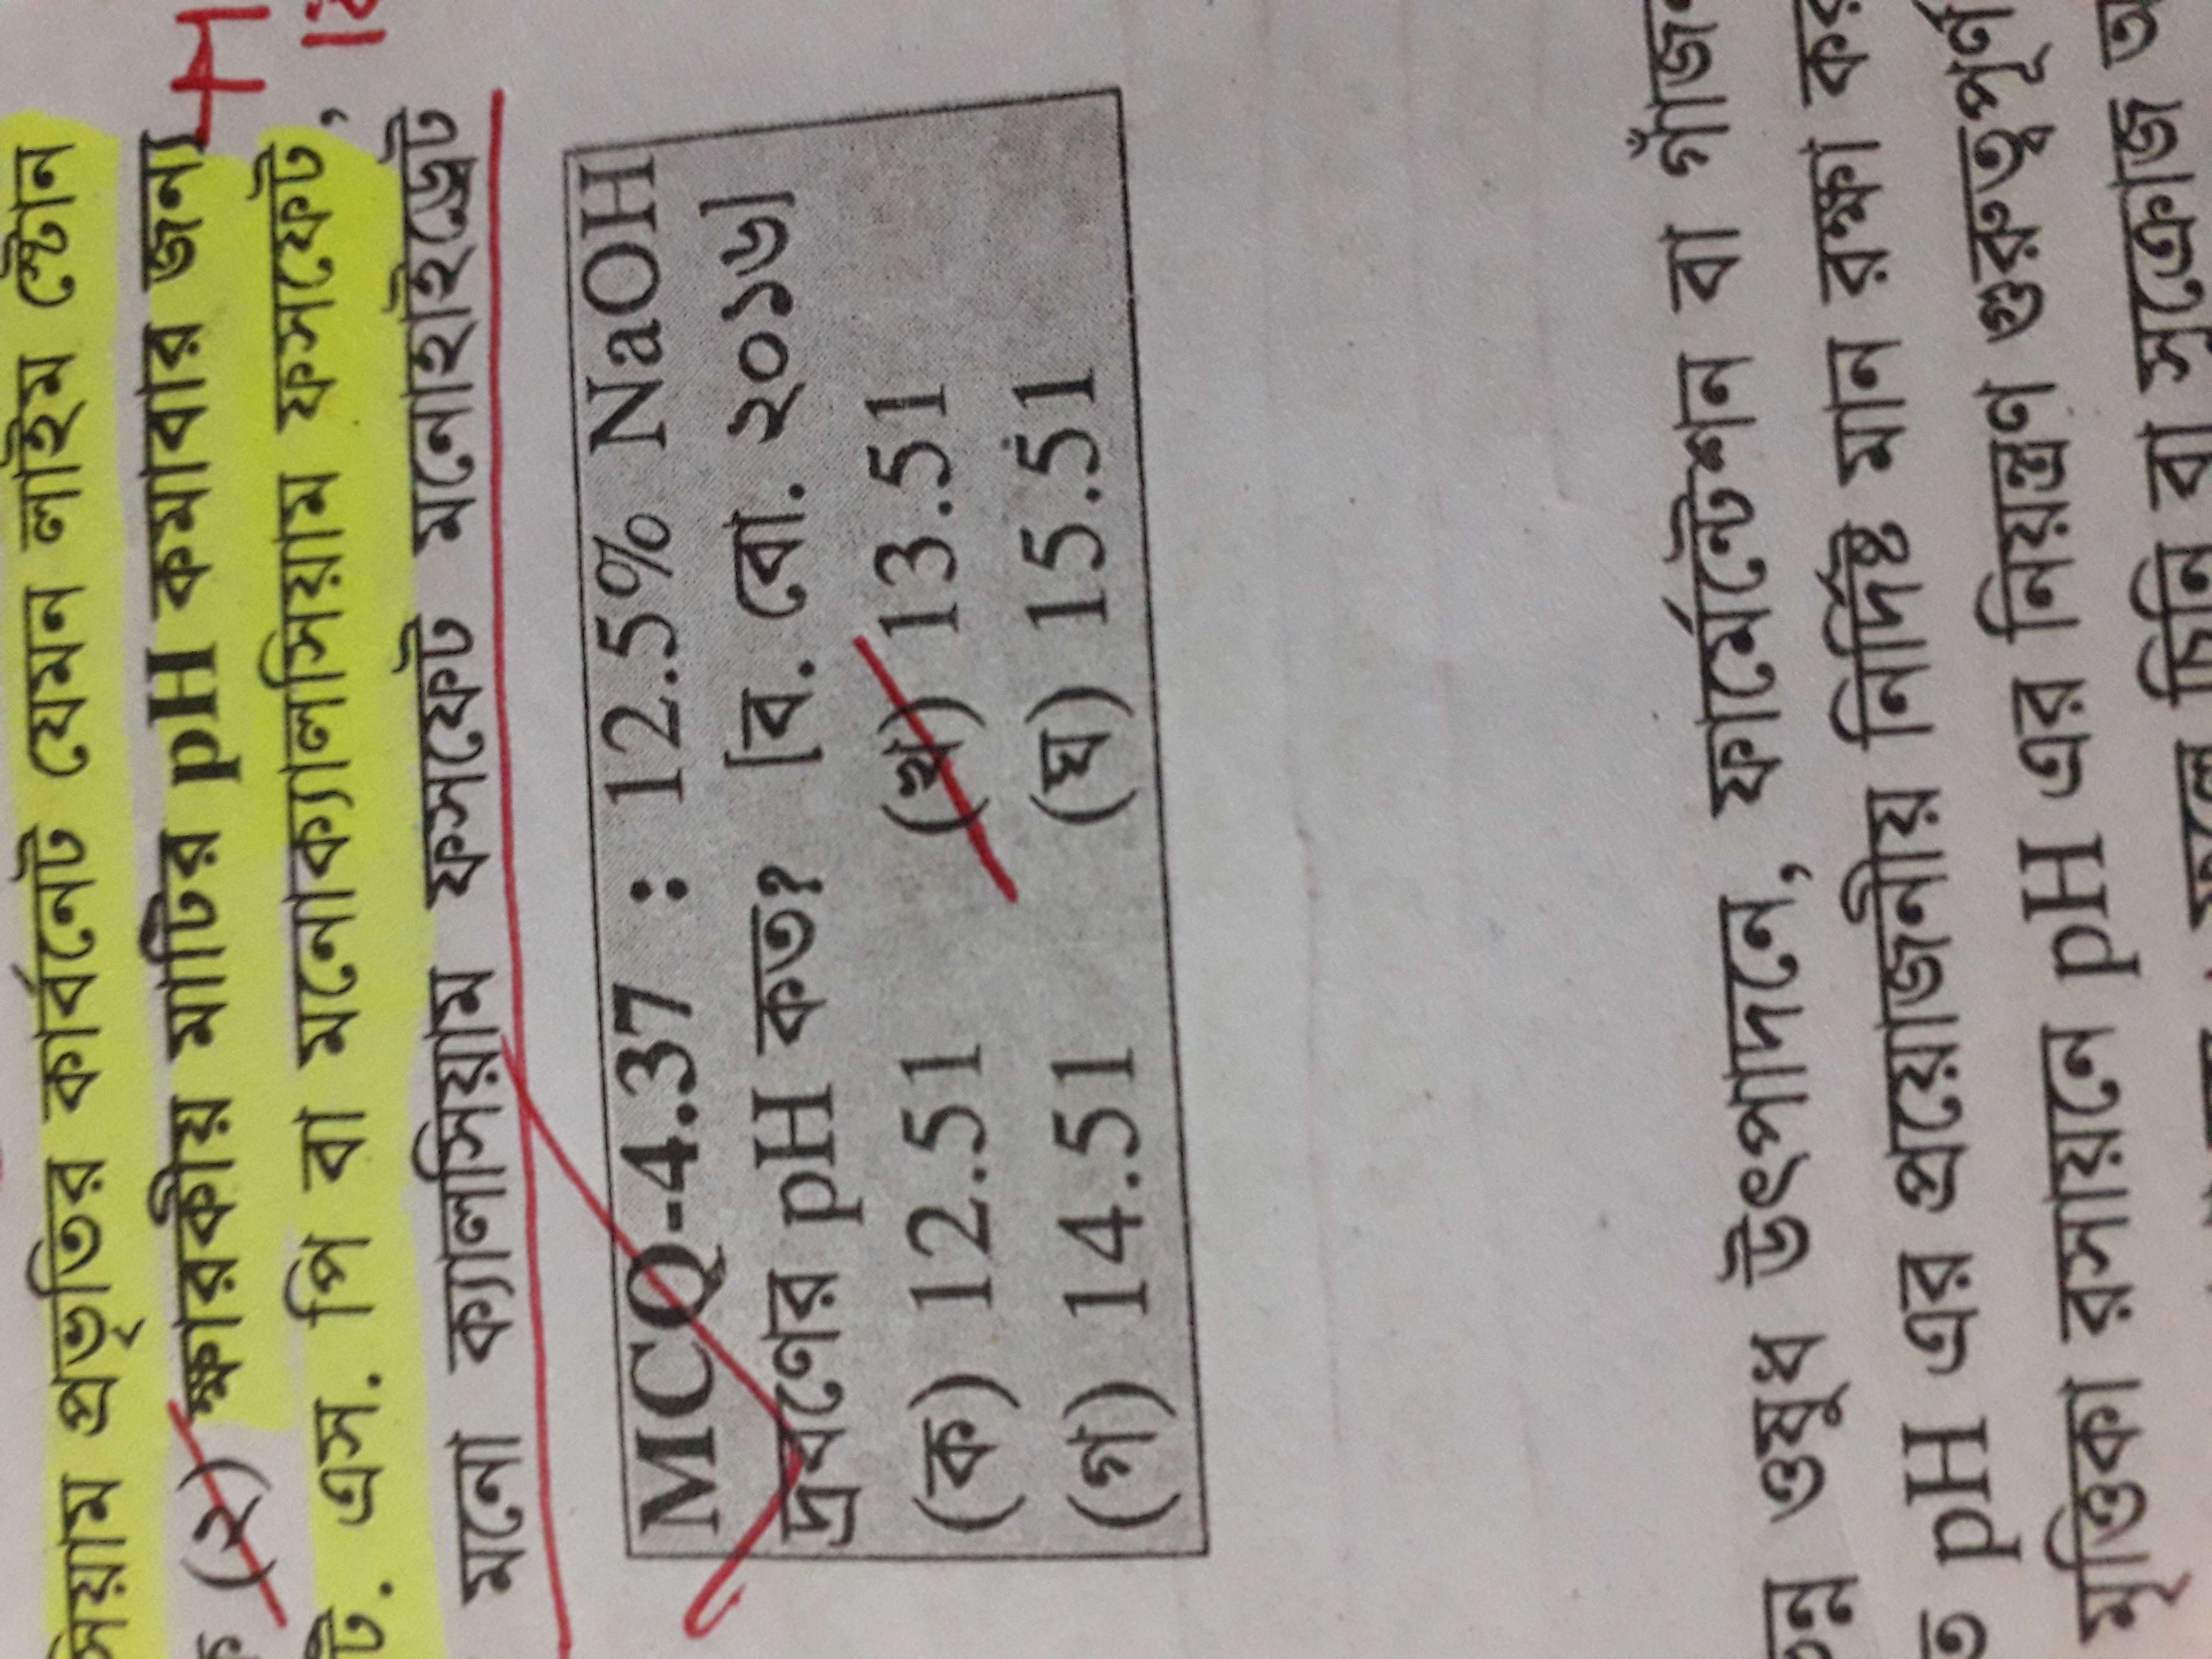 সিয়াম প্রভৃতির কার্বনেট যেমন লাইম স্টোন
(২) ক্ষারকীয় মাটির pH কমাবার জন্য
টি. এস. পি বা মনোক্যালসিয়াম ফসফেট,
মনো ক্যালসিয়াম ফসফেট মনোহাইড্রেট
MCQ-4.37 : 12.5% NaOH
দ্রবণের pH কত? [ব. বো. ২০১৬]
(ক) 12.51 (খ) 13.51
(গ) 14.51 (ঘ) 15.51
ওষুধ উৎপাদনে, ফার্মেন্টেশন বা গাঁজন
pH এর প্রয়োজনীয় নির্দিষ্ট মান রক্ষা
মৃত্তিকা রসায়নে pH এর নিয়ন্ত্রণ গুরুত্বপূর্ণ
চিনি বা সুক্রোজ